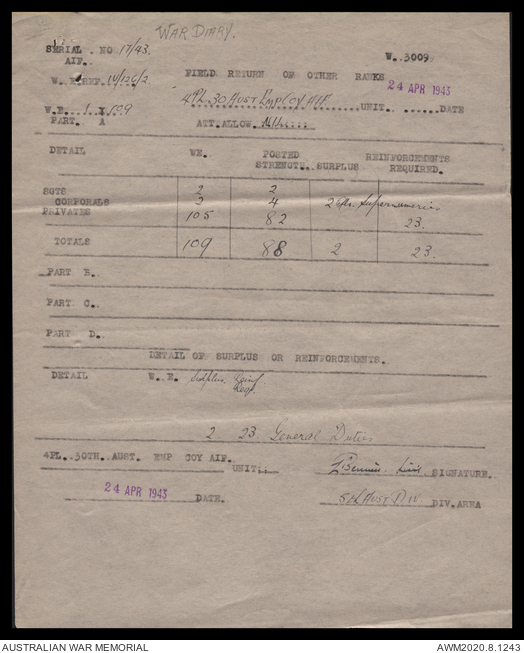 WAR DIARY.
SERIAL . NO 17/43.
AIF.
W..3009.
W.E.REF. IV/126/2.
FIELD RETURN OF OTHER RANKS
24 APR 1943
W.E. 1 X 509
4PL.30 AUST EMP COY AIF. UNIT. DATE
PART. A
ATT.ALLOW. Nil
DETAIL WE. POSTED STRENGTH. SURPLUS REINFORCEMENTS REQUIRED.
SGTS 2 2
CORPORALS 4 2 Cpls. Supernumeries
PRIVATES 105 82 23.
TOTALS 109 88 2 23.
PART B.
PART. C.
PART D.
DETAIL OF SURPLUS OR REINFORCEMENTS.
DETAIL W. E. Surplus. Reinf
Reqd.
2 23 General Duties
4PL..30TH..AUST. EMP COY AIF. UNIT..
Lieut SIGNATURE.
24 APR 1943 DATE.
5th AUST DIV DIV.AREA
AUSTRALIAN WAR MEMORIAL
AWM2020.8.1243